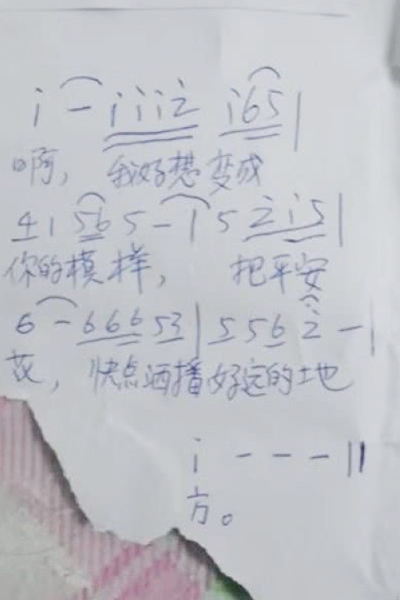 i - i i i 2 i 6 5 |
啊, 我好想变成
4 1 5 6 5 - | 5 2 i 5 |
你的模样, 把平安
6 - 6 6 6 5 3 | 5 5 6 2 - |
花, 快点洒播好远的地
i - - - ||
方。